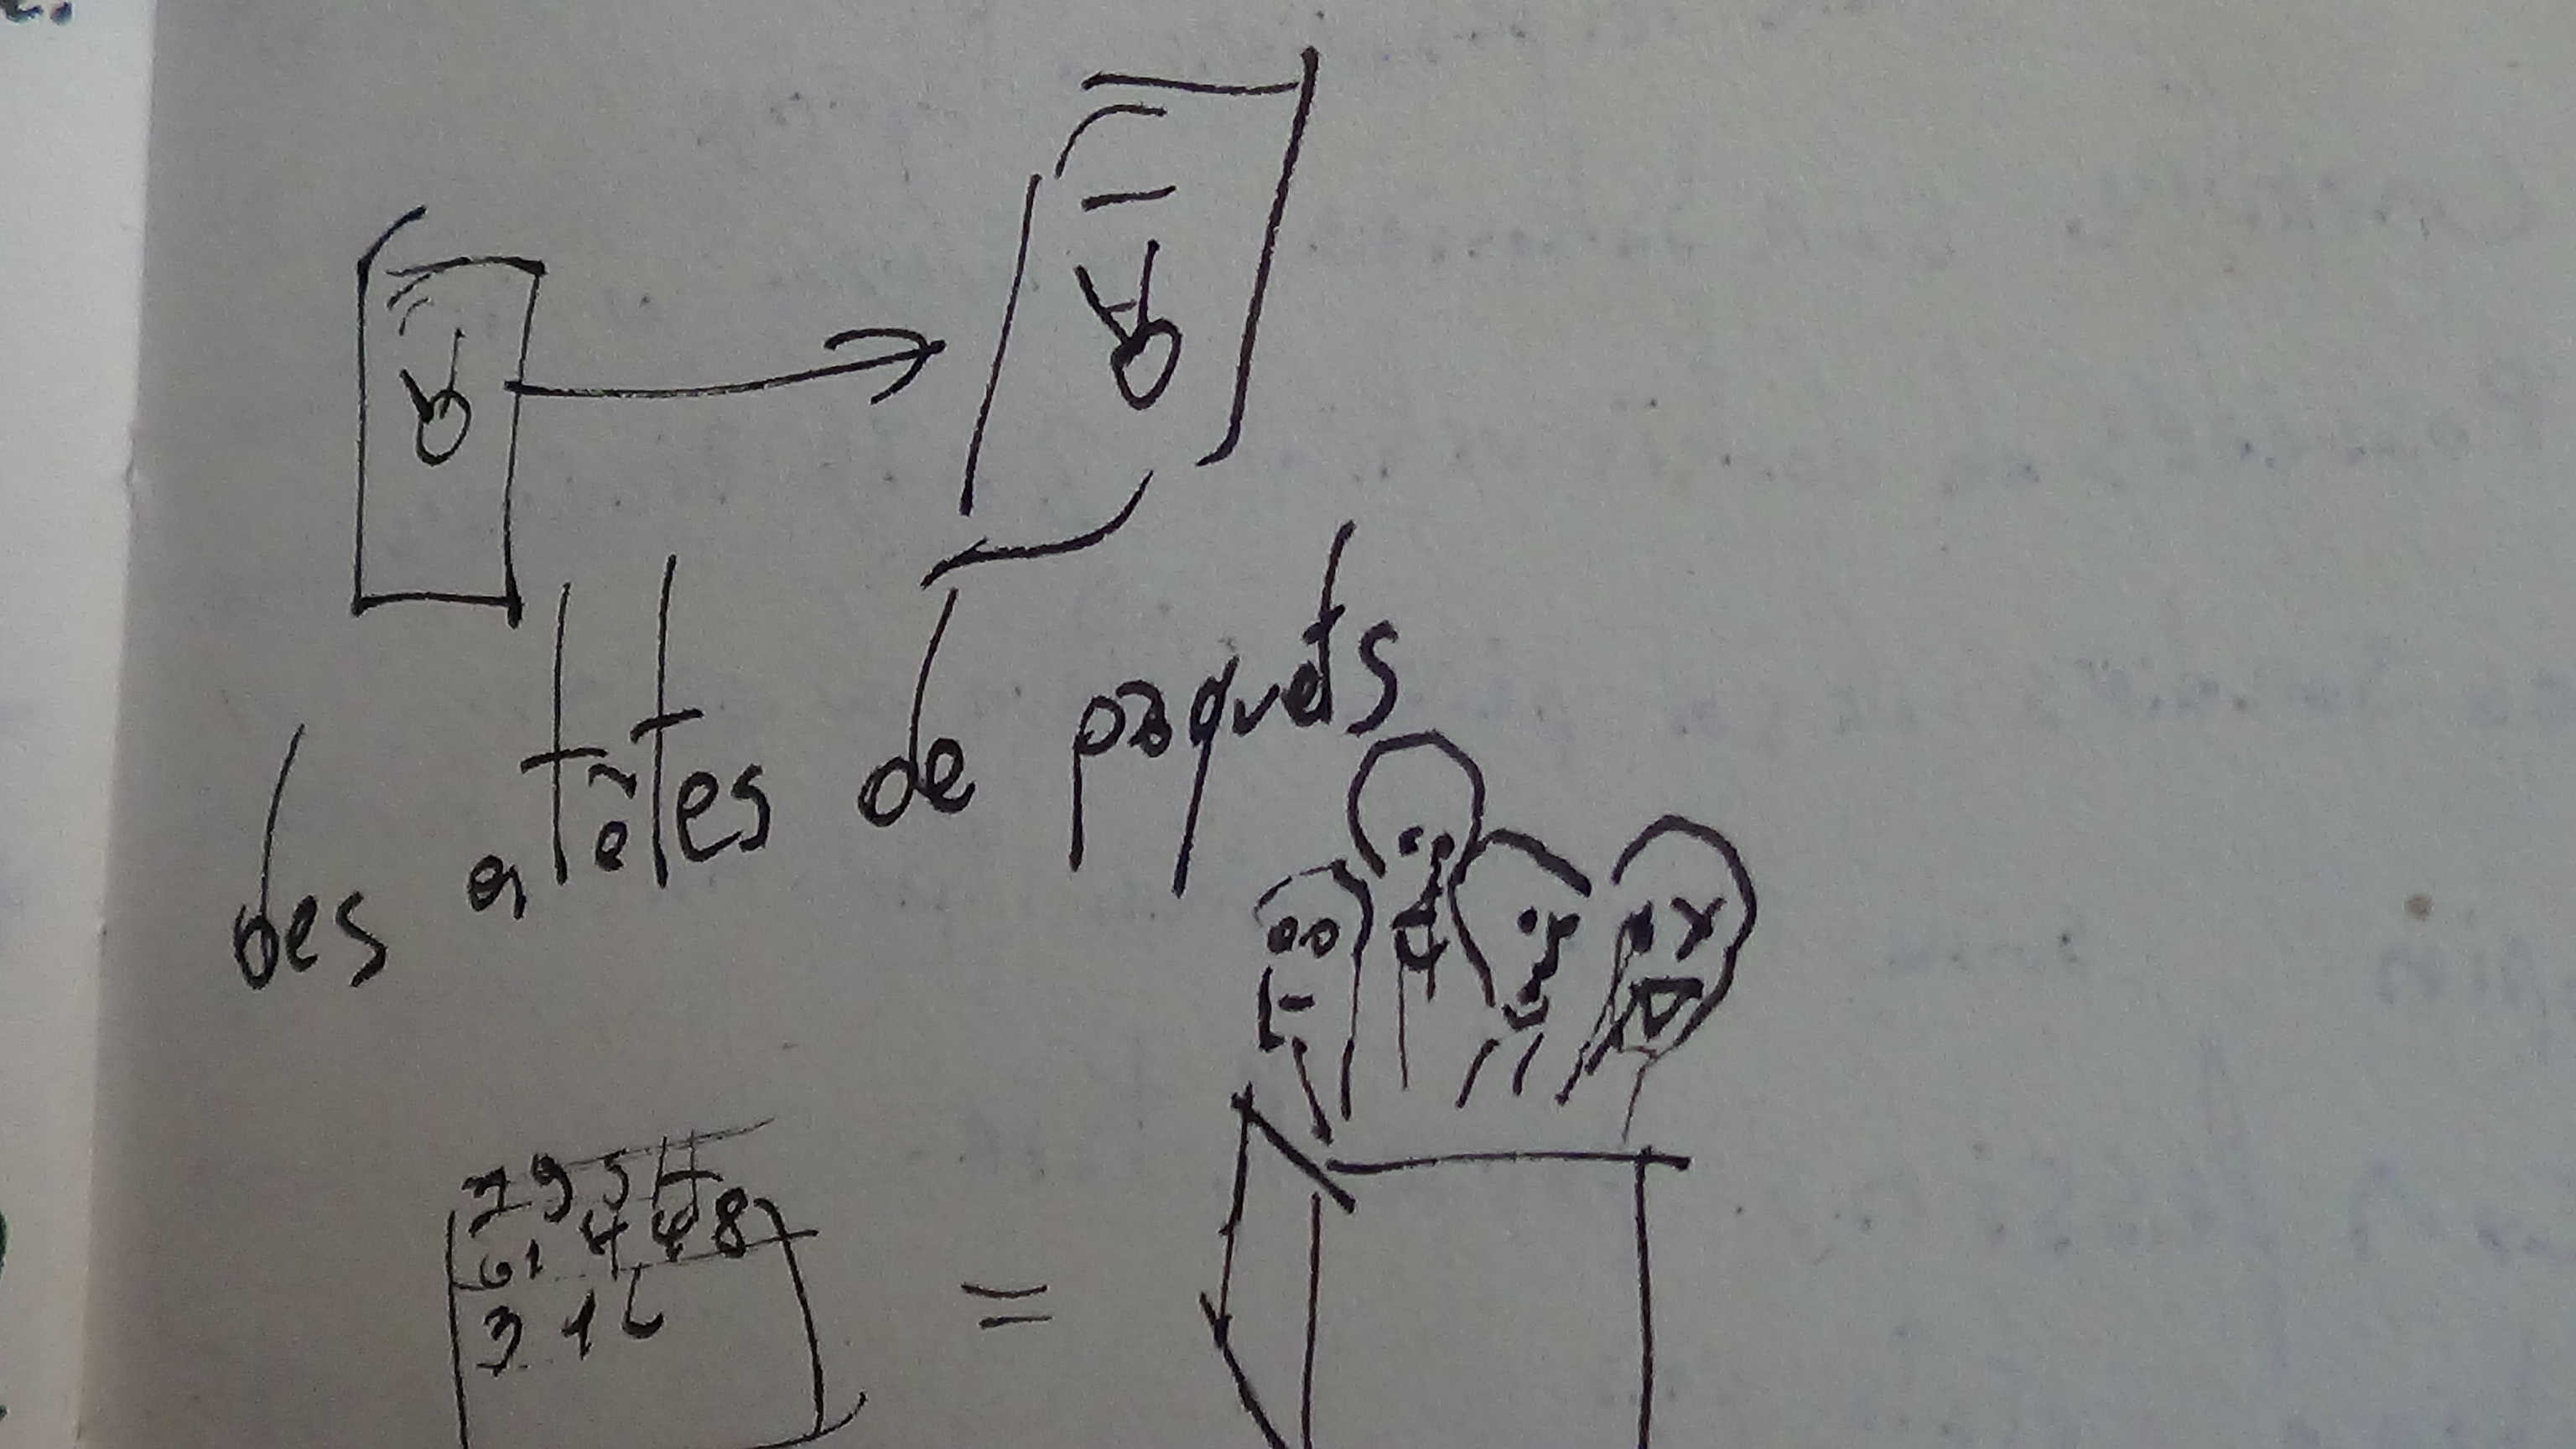 des entêtes de paquets
7954
61448
=